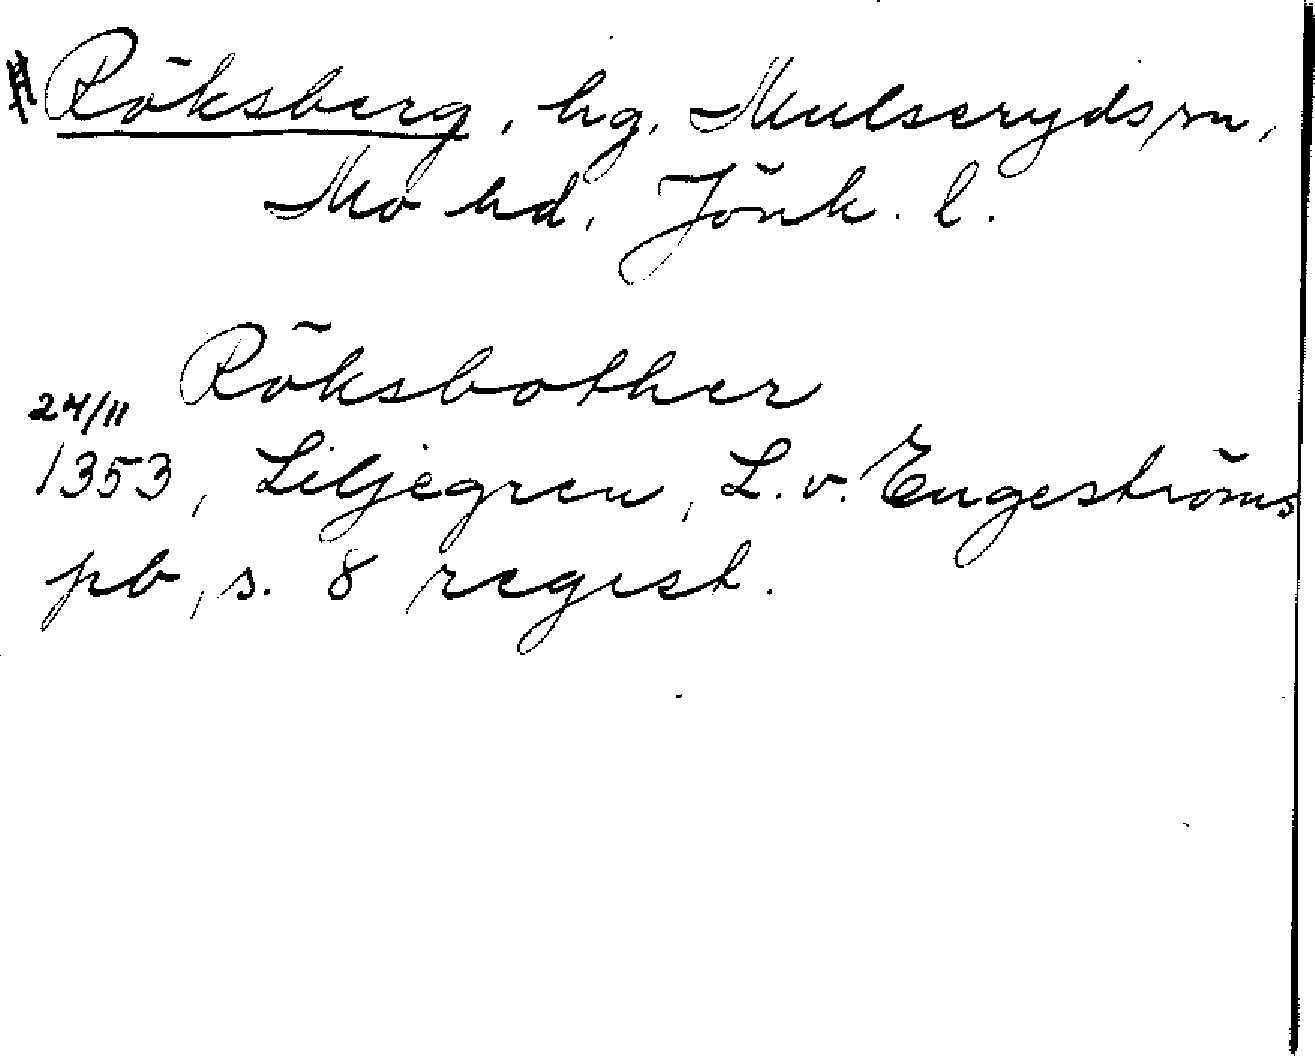 # Röksberg, hg, Mulserydssn,
Mo hd, Jönk. l.
Röksbother
24/11
1353, Liljegren, L. v. Engeströms
pb, s. 8 regest.